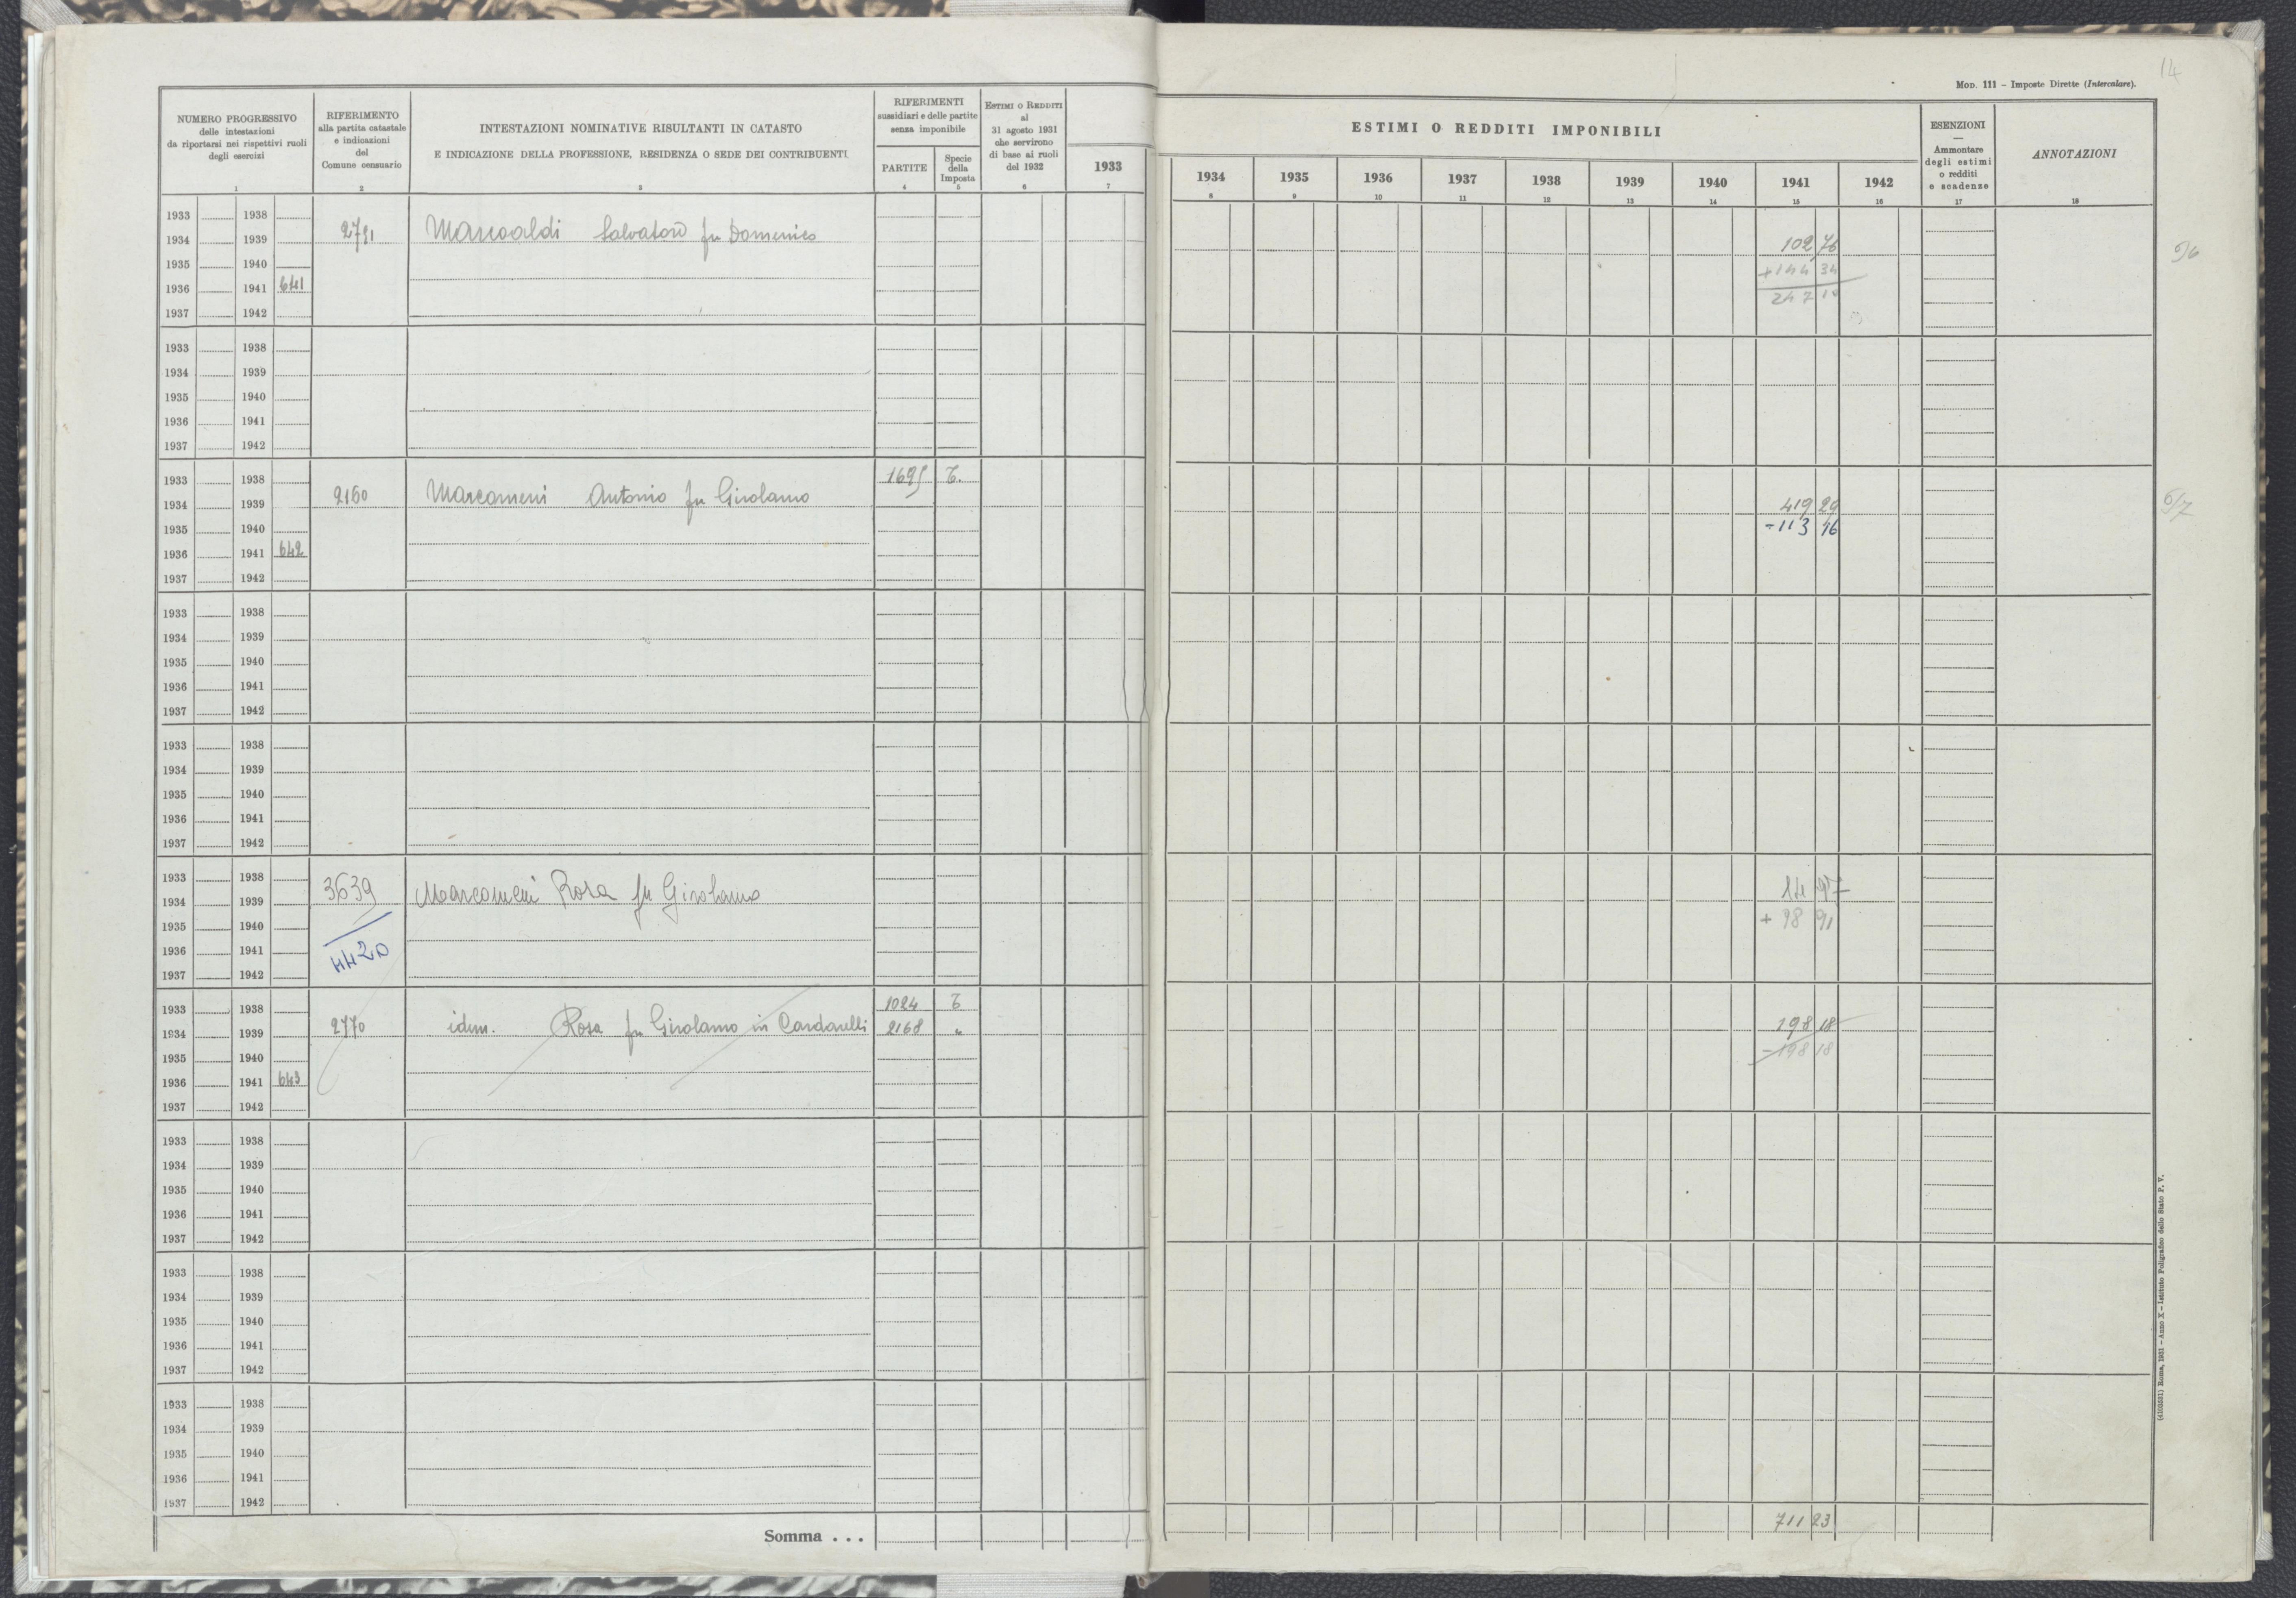 14
MOD. 111 – Imposte Dirette (Intercalare).
NUMERO PROGRESSIVO
delle intestazioni
da riportarsi nei rispettivi ruoli
degli esercizi
1
RIFERIMENTO
alla partita catastale
e indicazioni
del
Comune censuario
2
INTESTAZIONI NOMINATIVE RISULTANTI IN CATASTO
E INDICAZIONE DELLA PROFESSIONE, RESIDENZA O SEDE DEI CONTRIBUENTI
3
RIFERIMENTI
sussidiari e delle partite
senza imponibile
PARTITE
4
Specie
della
Imposta
5
ESTIMI O REDDITI
al
31 agosto 1931
che servirono
di base ai ruoli
del 1932
6
1933
7
ESTIMI O REDDITI IMPONIBILI
1934 1935 1936 1937 1938 1939 1940 1941 1942
8 9 10 11 12 13 14 15 16
ESENZIONI
—
Ammontare
degli estimi
o redditi
e scadenze
17
ANNOTAZIONI
18
1933 1938
1934 1939 2791 Marcoaldi Salvatore fu Domenico 102 76
1935 1940 +144 34
1936 1941 641 247 10
1937 1942
1933 1938
1934 1939
1935 1940
1936 1941
1937 1942
1933 1938 1695 T.
1934 1939 2160 Marcomeni Antonio fu Girolamo 419 29
1935 1940 -113 16
1936 1941 642
1937 1942
1933 1938
1934 1939
1935 1940
1936 1941
1937 1942
1933 1938
1934 1939
1935 1940
1936 1941
1937 1942
1933 1938
1934 1939 3639 Marcomeni Rosa fu Girolamo 14 97
1935 1940 + 98 91
1936 1941 4420
1937 1942
1933 1938 1024 T
1934 1939 2770 idem. Rosa fu Girolamo in Cardarelli 2168 " 198 18
1935 1940 -198 18
1936 1941 643
1937 1942
1933 1938
1934 1939
1935 1940
1936 1941
1937 1942
1933 1938
1934 1939
1935 1940
1936 1941
1937 1942
1933 1938
1934 1939
1935 1940
1936 1941
1937 1942
Somma . . . 711 23
(4103531) Roma, 1931 – Anno X – Istituto Poligrafico dello Stato P. V.